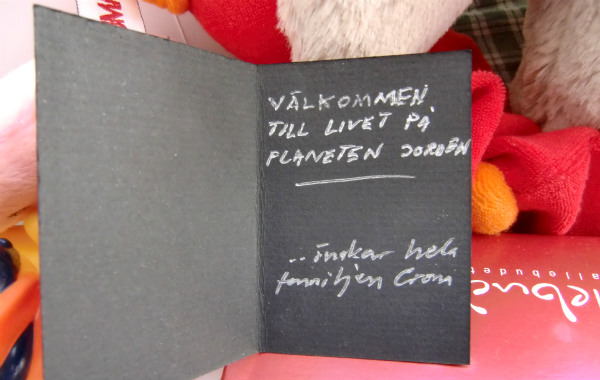 VÄLKOMMEN
TILL LIVET PÅ
PLANETEN JORDEN
...önskar hela
familjen Crona